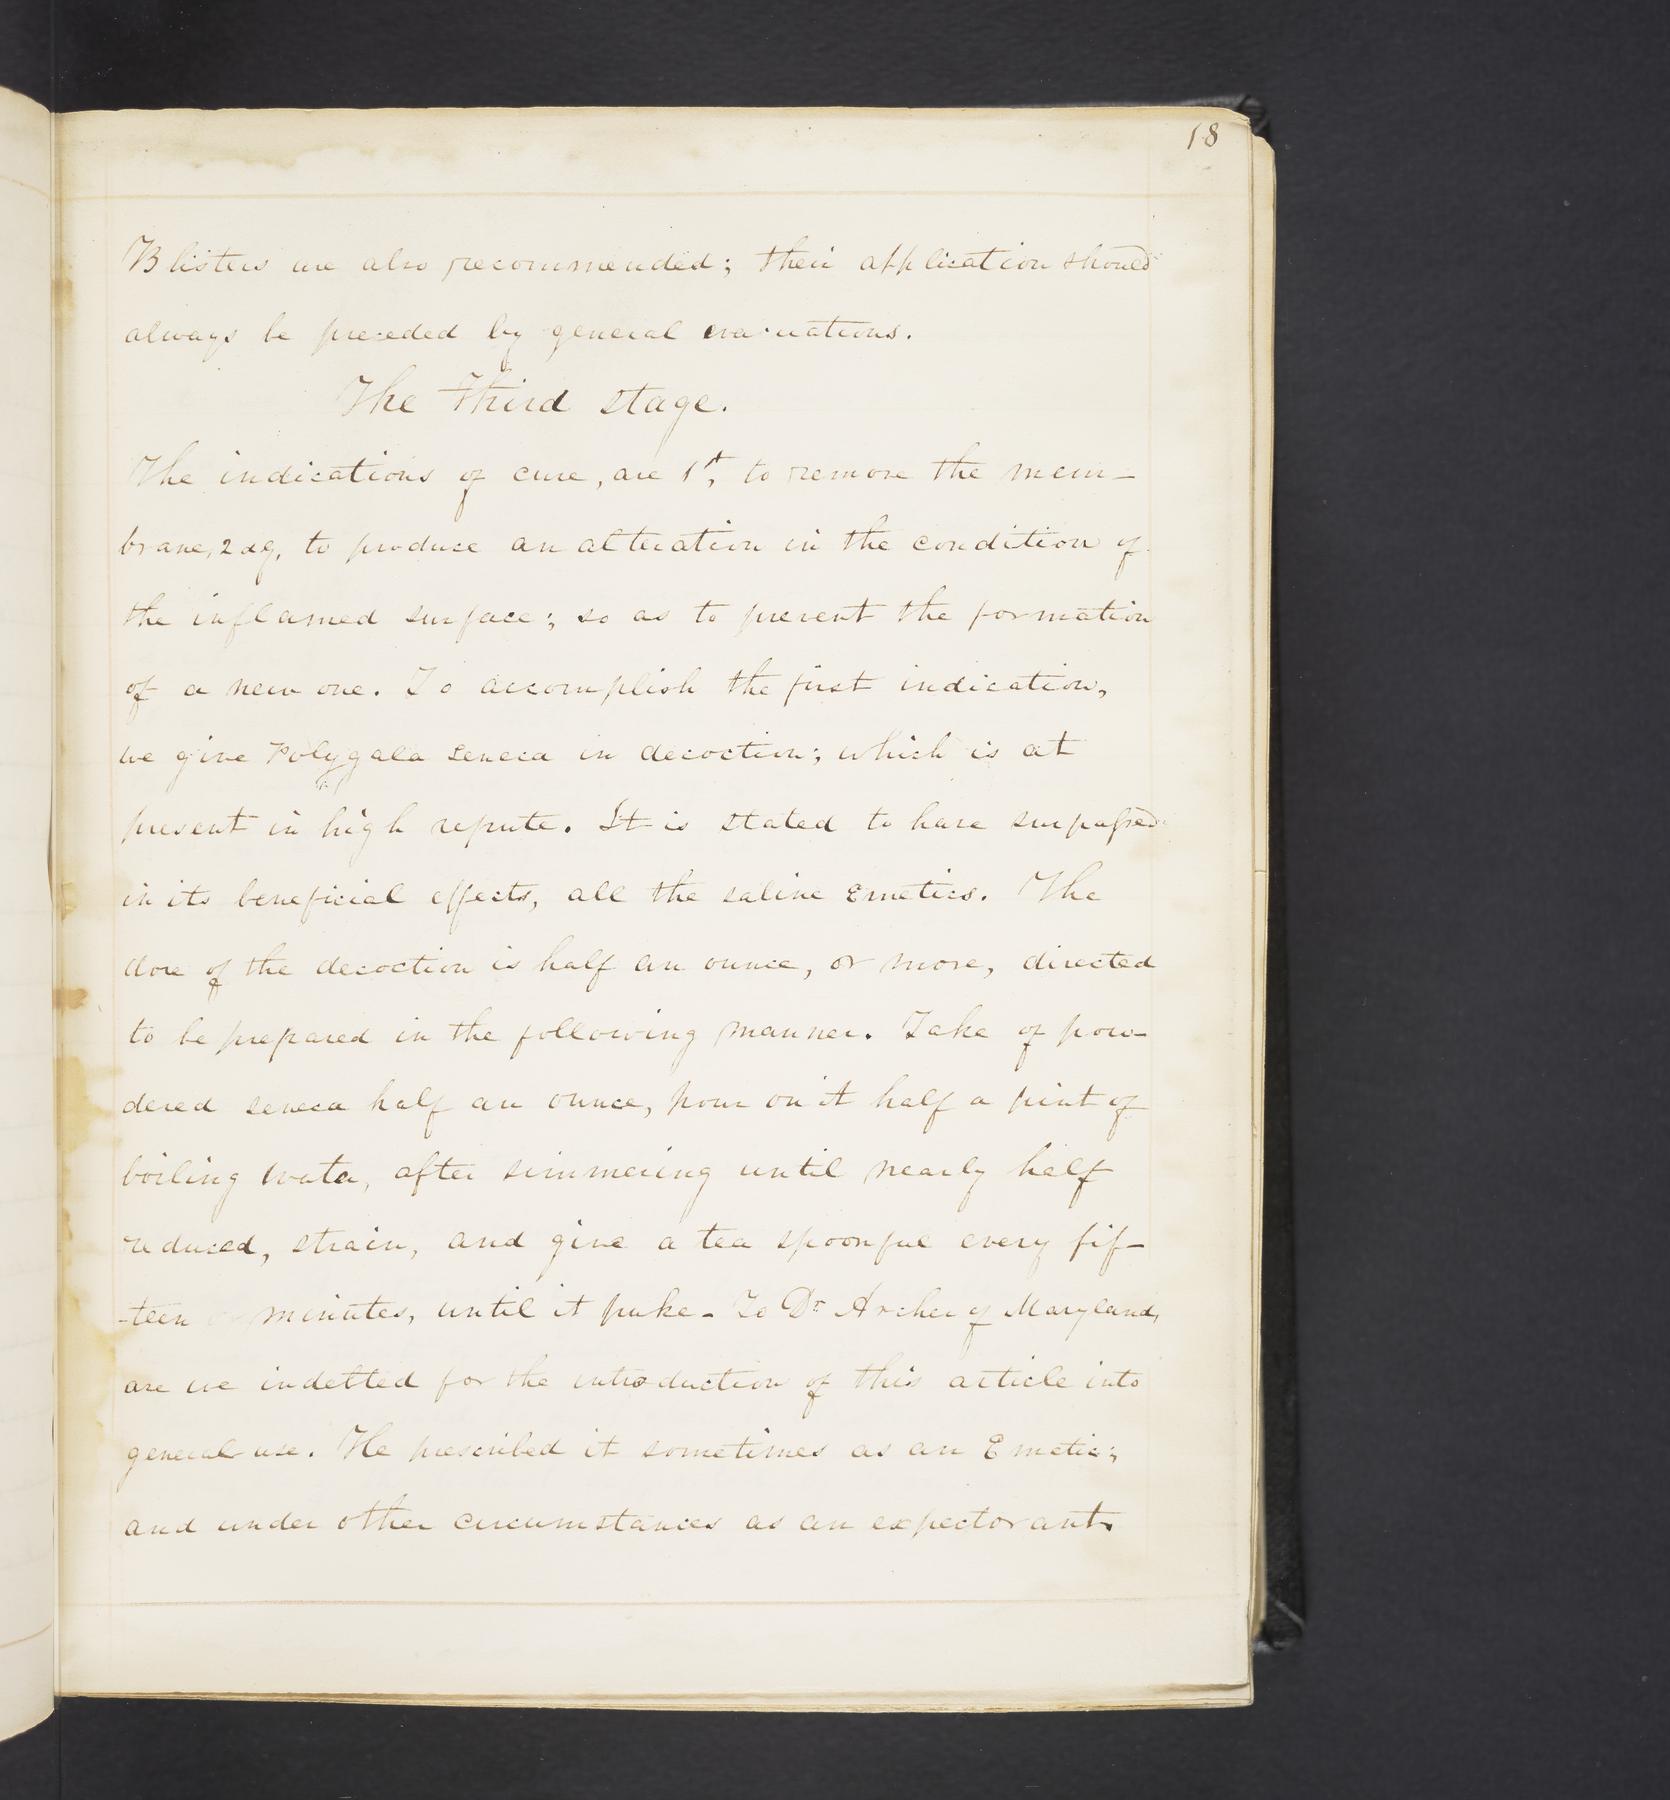 18
Blisters are also recommended; their application should
always be preceded by general evacuations.
The third stage.
The indications of cure, are 1st, to remove the mem-
brane, 2dly, to produce an alteration in the condition of
the inflamed surface; so as to prevent the formation
of a new one. To accomplish the first indication,
we give Polygala seneca in decoction; which is at
present in high repute. It is stated to have surpassed
in its beneficial effects, all the saline Emetics. The
dose of the decoction is half an ounce, or more, directed
to be prepared in the following manner. Take of pow-
dered seneca half an ounce, pour on it half a pint of
boiling water, after simmering until nearly half
reduced, strain, and give a tea spoonful every fif-
-teen minutes, until it puke - To Dr Archer of Maryland,
are we indetted for the introduction of this article into
general use. He prescribed it sometimes as an Emetic;
and under other circumstances as an expectorant.